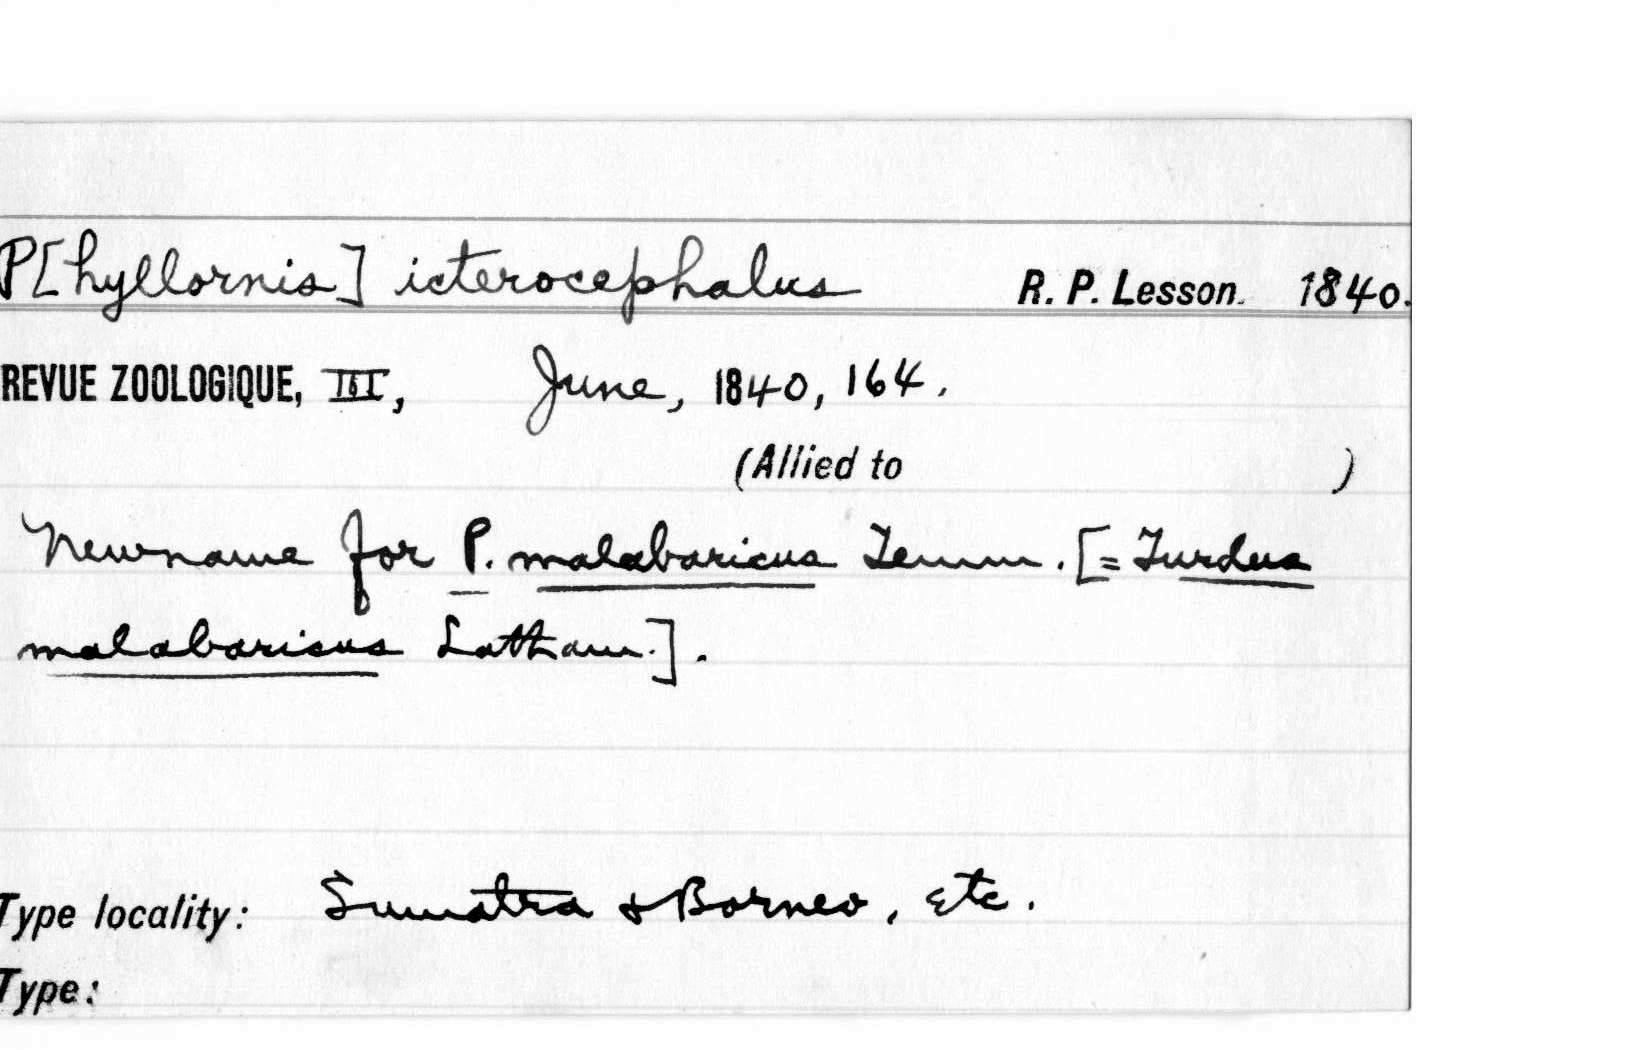 P[hyllornis] icterocephalus R. P. Lesson. 1840.
REVUE ZOOLOGIQUE, III, June, 1840, 164.
(Allied to )
Newname for P. malabaricus Temm. [= Turdus
malabaricus Latham.].
Type locality: Sumatra & Borneo, etc.
Type: